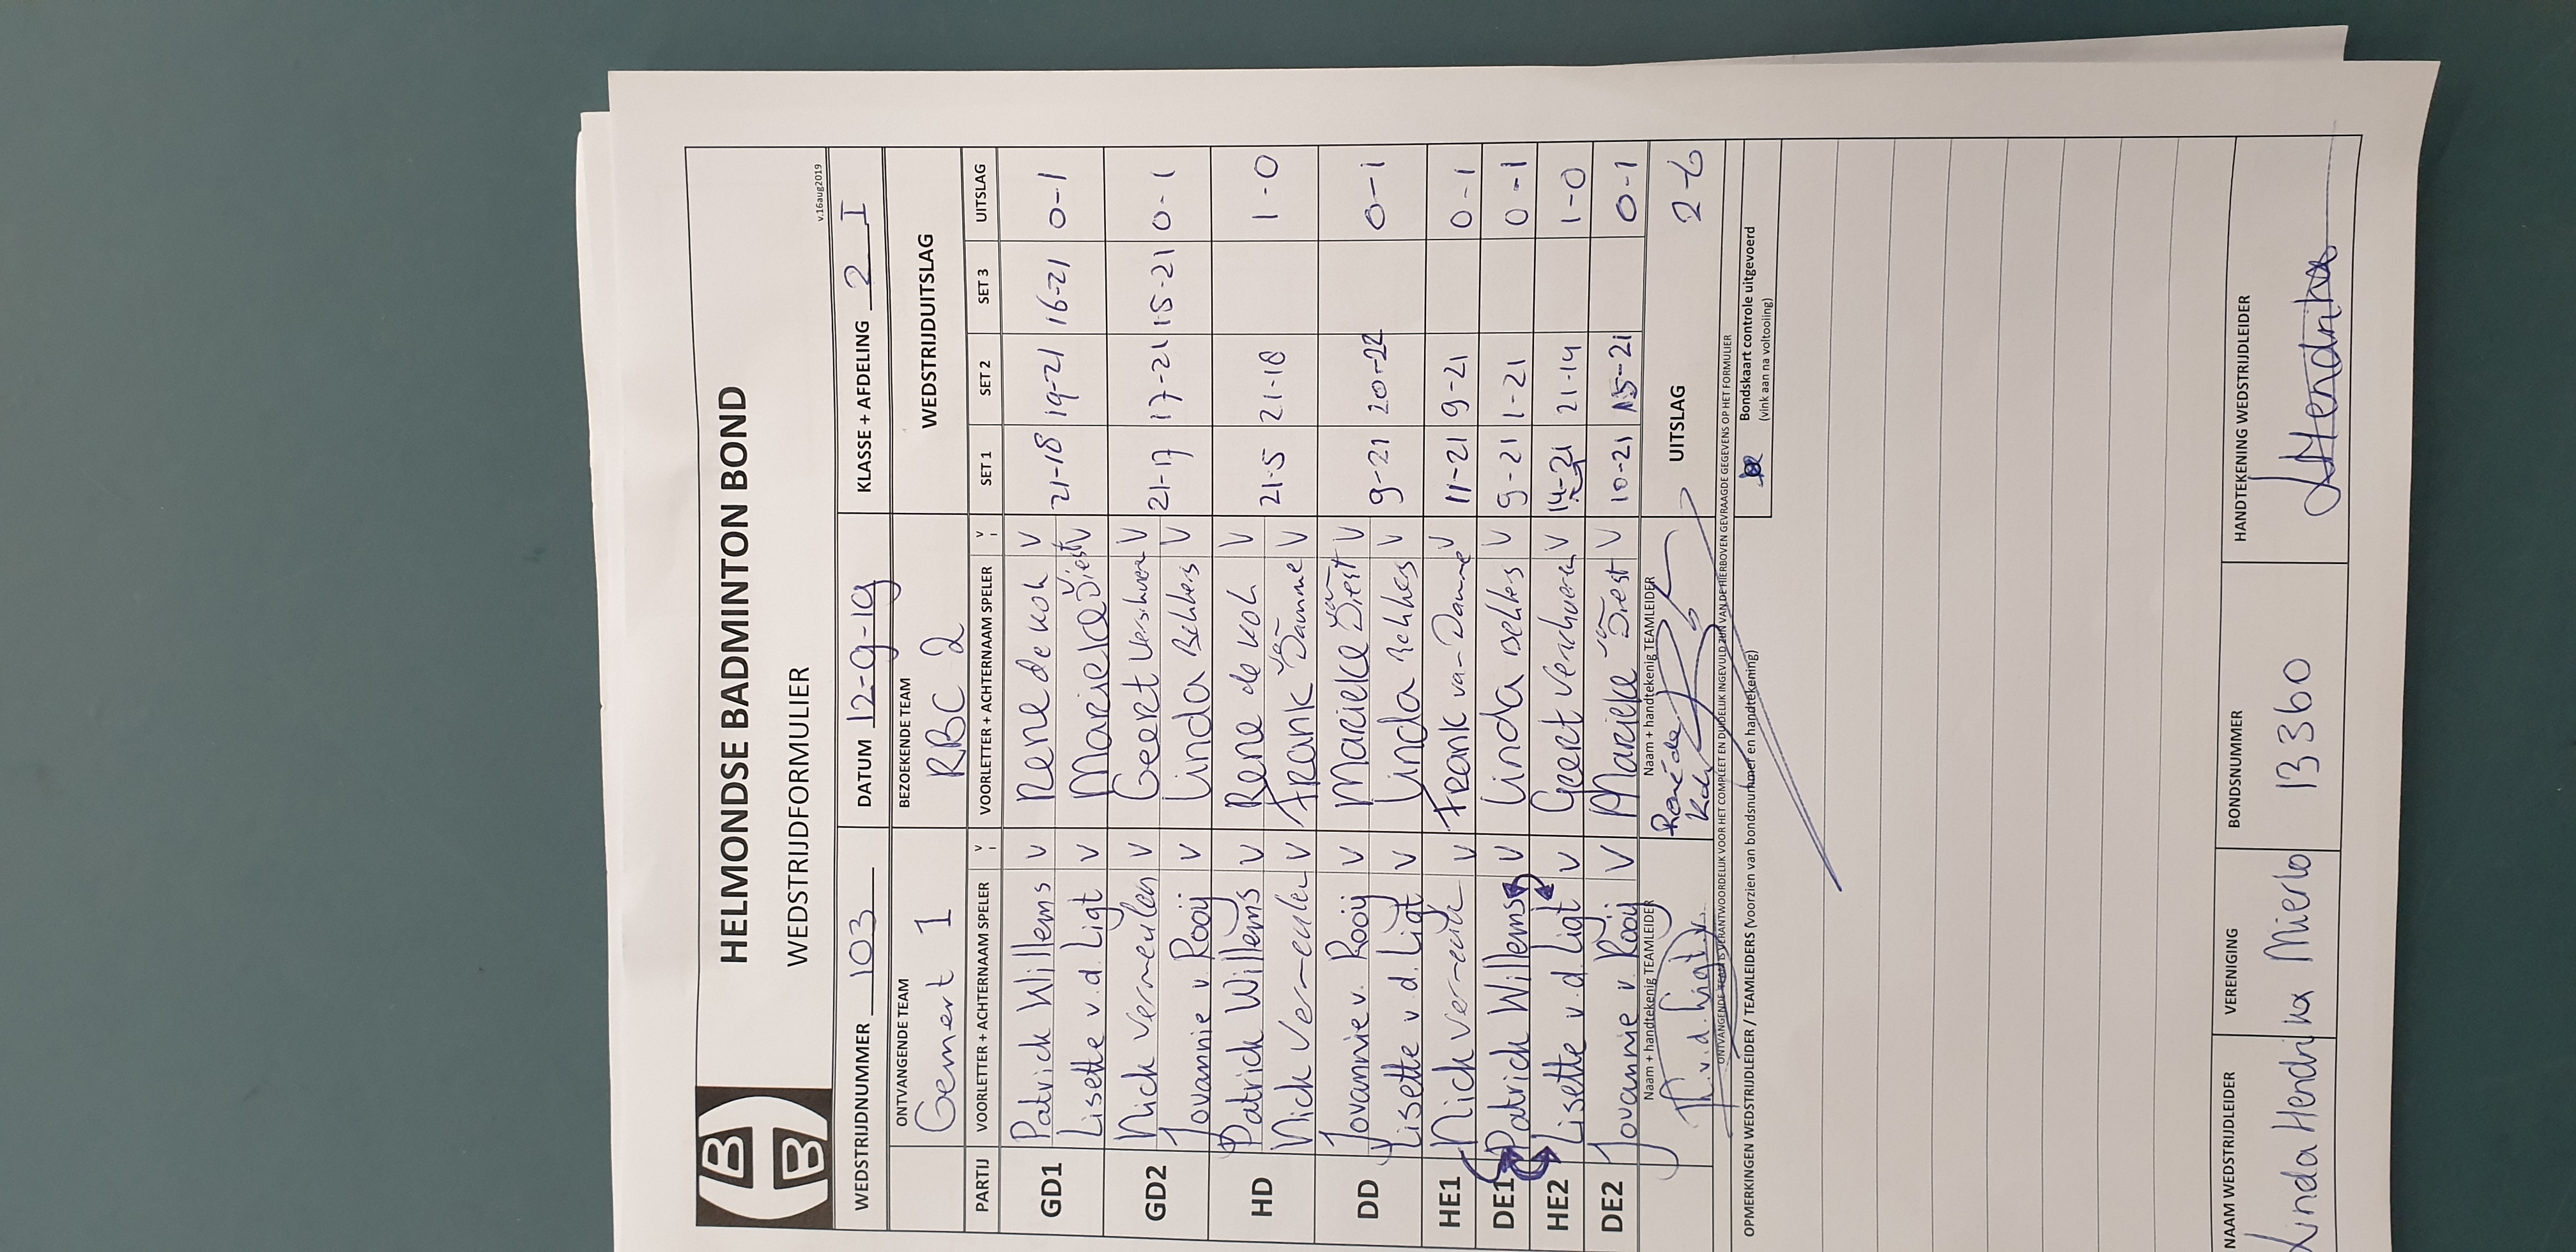 HELMONDSE BADMINTON BOND
WEDSTRIJDFORMULIER
v.16aug2019
WEDSTRIJDNUMMER 103 DATUM 12-9-19 KLASSE + AFDELING 2 I
ONTVANGENDE TEAM BEZOEKENDE TEAM WEDSTRIJDUITSLAG
Gemert 1 RBC 2
PARTIJ VOORLETTER + ACHTERNAAM SPELER V VOORLETTER + ACHTERNAAM SPELER V SET 1 SET 2 SET 3 UITSLAG
GD1 Patrick Willems V Rene de Koh V 21-18 19-21 16-21 0-1
Lisette v.d. Ligt V Marieke v Diest V
GD2 Nick Vermeulen V Geert Verschuren V 21-17 17-21 15-21 0-1
Jovannie v. Rooij V Linda Behhers V
HD Patrick Willems V Rene de Koh V 21-5 21-18 1-0
Nick Vermeulen V Frank van Damme V
DD Jovannie v. Rooij V Marieke van Diest V 9-21 20-22 0-1
Lisette v.d. Ligt V Linda Behhers V
HE1 Nick Vermeulen V Frank van Damme V 11-21 9-21 0-1
DE1 Patrick Willems V Linda Behhers V 9-21 1-21 0-1
HE2 Lisette v.d Ligt V Geert Verschuren V 14-21 21-14 1-0
DE2 Jovannie v. Rooij V Marieke van Diest V 10-21 15-21 0-1
Naam + handtekenig TEAMLEIDER Naam + handtekenig TEAMLEIDER UITSLAG 2-6
v.d. Ligt René de Koh
ONTVANGENDE TEAM IS VERANTWOORDELIJK VOOR HET COMPLEET EN DUIDELIJK INGEVULD ZIJN VAN DE HIERBOVEN GEVRAAGDE GEGEVENS OP HET FORMULIER
OPMERKINGEN WEDSTRIJDLEIDER / TEAMLEIDERS (voorzien van bondsnummer en handtekening)
Bondskaart controle uitgevoerd
(vink aan na voltooling)
NAAM WEDSTRIJDLEIDER VERENIGING BONDSNUMMER HANDTEKENING WEDSTRIJDLEIDER
Linda Hendrikx Mierlo 13360 LHendrikx